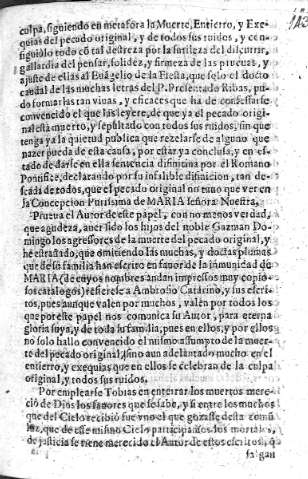 culpa, siguiendo en metafora la Muerte, Entierro, y Exe-
quias del pecado original, y de todos sus ruidos, y con-
siguiòlo todo cõ tal destreza por la sutileza del discurrir,
gallardia del pensar, solidez, y firmeza de las pruevas, y
ajuste de ellas al Euãgelio de la Fiesta, que solo el docto
caudal de las muchas letras del P. Presentado Ribas, pu-
do formar las tan viuas, y eficaces que ha de confessarse
convencido el que las leyere, de que ya el pecado origi-
nal està muerto, y sepultado con todos sus ruidos, sin que
tenga ya la quietud publica que rezelarse de alguno que
nazer pueda de esta causa, por estar ya conclusa, y en es-
tado de darse en ella sentencia difinitiua por el Romano
Pontifice, declarando por su infalible difinicion, tan de-
seada de todos, que el pecado original no tuuo que ver en
la Concepcion Purissima de MARIA señora Nuestra.
Prueua el Autor de este papel, con no menos verdad,
que agudeza, aver sido los hijos del noble Guzman Do-
mingo los agressores de la muerte del pecado original, y
hè estrañado, que omitiendo las muchas, y doctas plumas
que de su familia han escrito en fauor de la inmunidad de
MARIA (de cuyos nombres andan impressos muy copio-
sos catalogos) refiere a Ambrosio Catarino, y sus escri-
tos, pues aunque valen por muchos, valen por todos los
que por este papel nos comunica su Autor, para eterna
gloria suya, y de toda su familia, pues en ellos, y por ellos
no solo hallo convencido el mismo assumpto de la muer-
te del pecado original, sino aun adelantado mucho en el
entierro, y exequias que en ellos se celebran de la culpa
original, y todos sus ruidos.
Por emplearse Tobias en enterrar los muertos mere-
ciò de Dios los fauores que se sabe, y si entre los muchos
que del Cielo recibiò fue vno el que gozasse desta comũ
luz, que de esse mismo Cielo participamos los mortales,
de justicia se tiene merecido el Autor de estos escritos, q̃
salgan